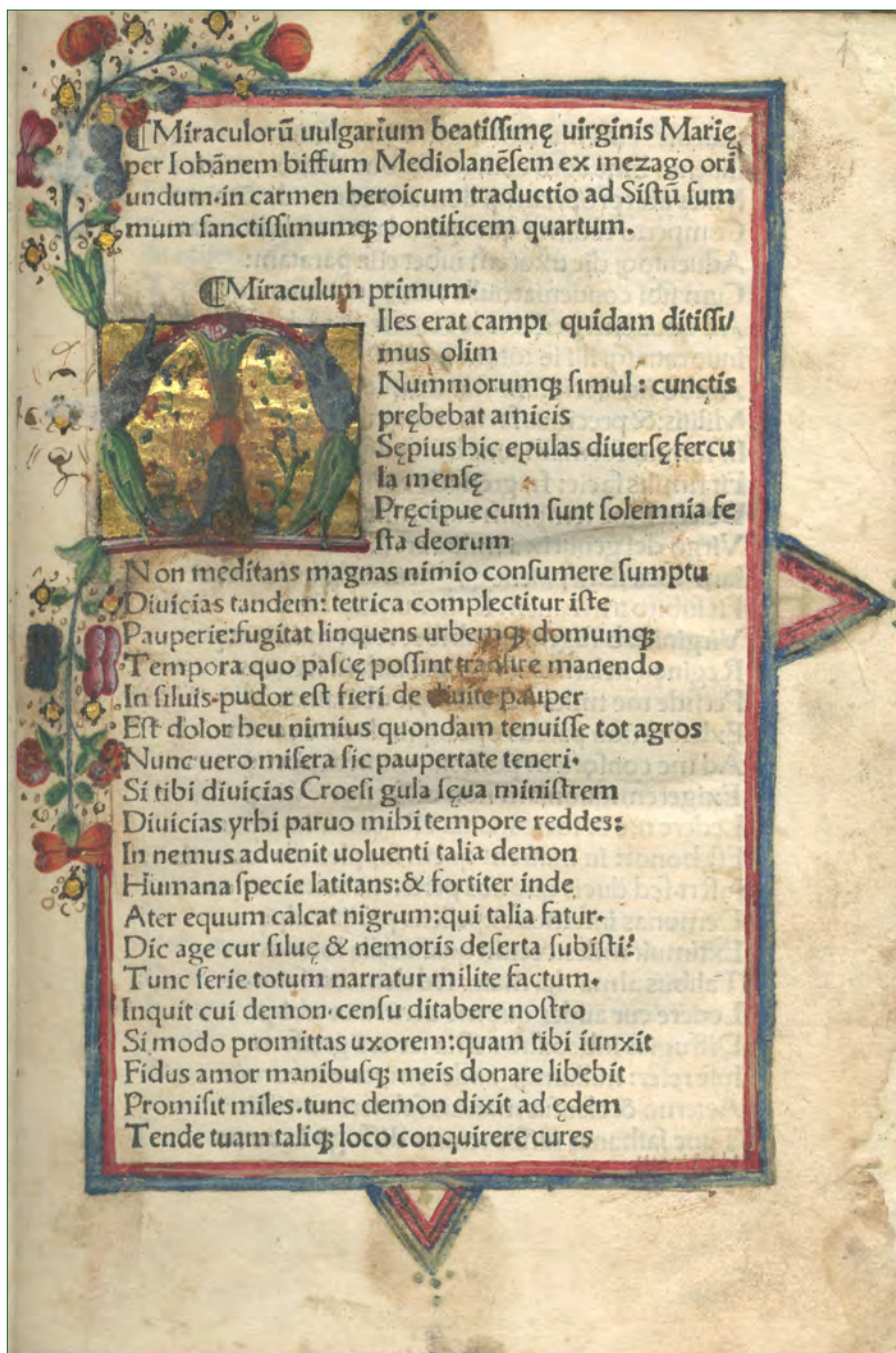 ⸿Miraculorū uulgarium beatiſſimę uirginis Marię
per Iohānem biffum Mediolanēſem ex mezago ori
undum·in carmen heroicum traductio ad Siſtū ſum
mum ſanctiſſimumqꝫ pontificem quartum.
⸿Miraculum primum·
MIles erat campi quidam ditiſſi/
mus olim
Nummorumqꝫ ſimul : cunctis
prębebat amicis
Sępius hic epulas diuerſę fercu
la menſę
Pręcipue cum ſunt ſolemnia fe
ſta deorum
Non meditans magnas nimio conſumere ſumptu
Diuicias tandem: tetrica complectitur iſte
Pauperie:fugitat linquens urbemqꝫ domumqꝫ
Tempora quo paſcę poſſint tranſire manendo
In ſiluis·pudor eſt fieri de diuite pauper
Eſt dolor heu nimius quondam tenuiſſe tot agros
Nunc uero miſera ſic paupertate teneri·
Si tibi diuicias Croeſi gula ſęua miniſtrem
Diuicias yrbi paruo mihi tempore reddes:
In nemus aduenit uoluenti talia demon
Humana ſpecie latitans:& fortiter inde
Ater equum calcat nigrum:qui talia fatur·
Dic age cur ſiluę & nemoris deſerta ſubiſti?
Tunc ſerie totum narratur milite factum·
Inquit cui demon·cenſu ditabere noſtro
Si modo promittas uxorem:quam tibi iunxit
Fidus amor manibuſqꝫ meis donare libebit
Promiſit miles.tunc demon dixit ad ędem
Tende tuam taliqꝫ loco conquirere cures